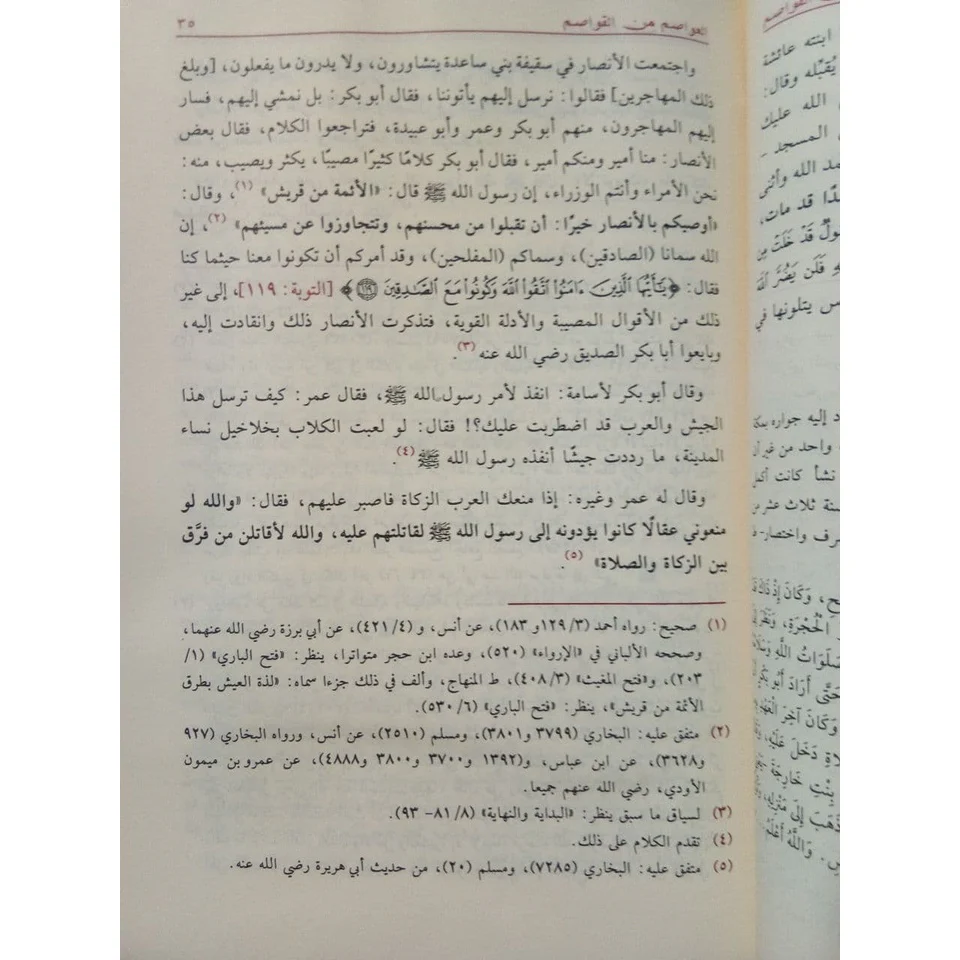 العواصم من القواصم
٣٥
واجتمعت الأنصار في سقيفة بني ساعدة يتشاورون، ولا يدرون ما يفعلون، [وبلغ
ذلك المهاجرين] فقالوا: نرسل إليهم يأتوننا، فقال أبو بكر: بل نمشي إليهم، فسار
إليهم المهاجرون، منهم أبو بكر وعمر وأبو عبيدة، فتراجعوا الكلام، فقال بعض
الأنصار: منا أمير ومنكم أمير، فقال أبو بكر كلامًا كثيرًا مصيبًا، يكثر ويصيب، منه:
نحن الأمراء وأنتم الوزراء، إن رسول الله ﷺ قال: «الأئمة من قريش» (١)، وقال:
«أوصيكم بالأنصار خيرًا: أن تقبلوا من محسنهم، وتتجاوزوا عن مسيئهم» (٢)، إن
الله سمانا (الصادقين)، وسماكم (المفلحين)، وقد أمركم أن تكونوا معنا حيثما كنا
فقال: ﴿يَٰٓأَيُّهَا ٱلَّذِينَ ءَامَنُوا۟ ٱتَّقُوا۟ ٱللَّهَ وَكُونُوا۟ مَعَ ٱلصَّٰدِقِينَ ١١٩﴾ [التوبة: ١١٩]، إلى غير
ذلك من الأقوال المصيبة والأدلة القوية، فتذكرت الأنصار ذلك وانقادت إليه،
وبايعوا أبا بكر الصديق رضي الله عنه (٣).
وقال أبو بكر لأسامة: انفذ لأمر رسول الله ﷺ، فقال عمر: كيف ترسل هذا
الجيش والعرب قد اضطربت عليك؟! فقال: لو لعبت الكلاب بخلاخيل نساء
المدينة، ما رددت جيشًا أنفذه رسول الله ﷺ (٤).
وقال له عمر وغيره: إذا منعك العرب الزكاة فاصبر عليهم، فقال: «والله لو
منعوني عقالًا كانوا يؤدونه إلى رسول الله ﷺ لقاتلتهم عليه، والله لأقاتلن من فرَّق
بين الزكاة والصلاة» (٥).
(١) صحيح: رواه أحمد (٣/ ١٢٩ و ١٨٣)، عن أنس، و (٤/ ٤٢١)، عن أبي برزة رضي الله عنهما،
وصححه الألباني في «الإرواء» (٥٢٠)، وعده ابن حجر متواترا، ينظر: «فتح الباري» (١/
٢٠٣)، و«فتح المغيث» (٣/ ٤٠٨)، ط المنهاج، وألف في ذلك جزءا سماه: «لذة العيش بطرق
الأئمة من قريش»، ينظر: «فتح الباري» (٦/ ٥٣٠).
(٢) متفق عليه: البخاري (٣٧٩٩ و٣٨٠١)، ومسلم (٢٥١٠)، عن أنس، ورواه البخاري (٩٢٧
و٣٦٢٨)، عن ابن عباس، و(١٣٩٢ و٣٧٠٠ و٣٨٠٠ و٤٨٨٨)، عن عمرو بن ميمون
الأودي، رضي الله عنهم جميعا.
(٣) لسياق ما سبق ينظر: «البداية والنهاية» (٨/ ٨١– ٩٣).
(٤) تقدم الكلام على ذلك.
(٥) متفق عليه: البخاري (٧٢٨٥)، ومسلم (٢٠)، من حديث أبي هريرة رضي الله عنه.
ابنته عائشة
يُقبِّله وقال:
الله عليك
المسجد -
الله وأثنى
قد مات،
قَدْ خَلَتْ مِن
فَلَن يَضُرَّ ٱللَّهَ
يتلونها في
إليه جواره
واحد من غير
نشأ كانت
ثلاث عشر
واختصار
وَكَانَ إِذْ ذَاكَ
الْحُجْرَةِ،
صَلَوَاتُ اللَّهِ
حَتَّى أَرَادَ أَبُو
وَكَانَ آخِرَ
دَخَلَ عَلَيْهِ،
بِنْتِ خَارِجَةَ
إِلَى
وَاللَّهُ أَعْلَمُ